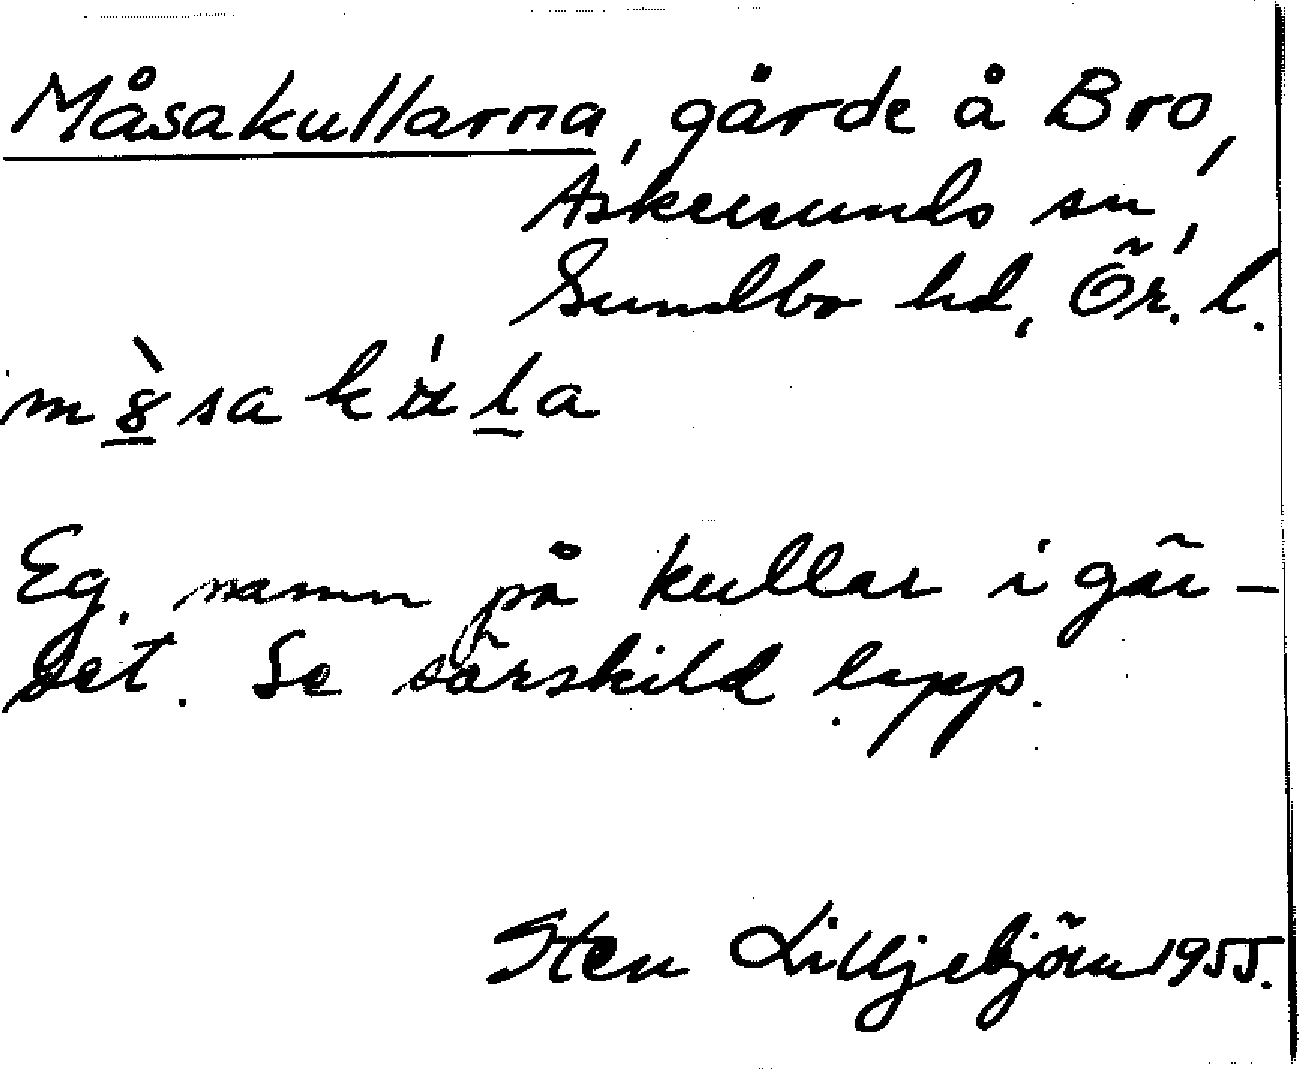 Måsakullarna, gärde å Bro,
Askersunds sn,
Sundbo hd, Ör. l.
Eg. namn på kullar i gär-
det. Se särskild lapp.
Sten Lilljebjörn 1955.